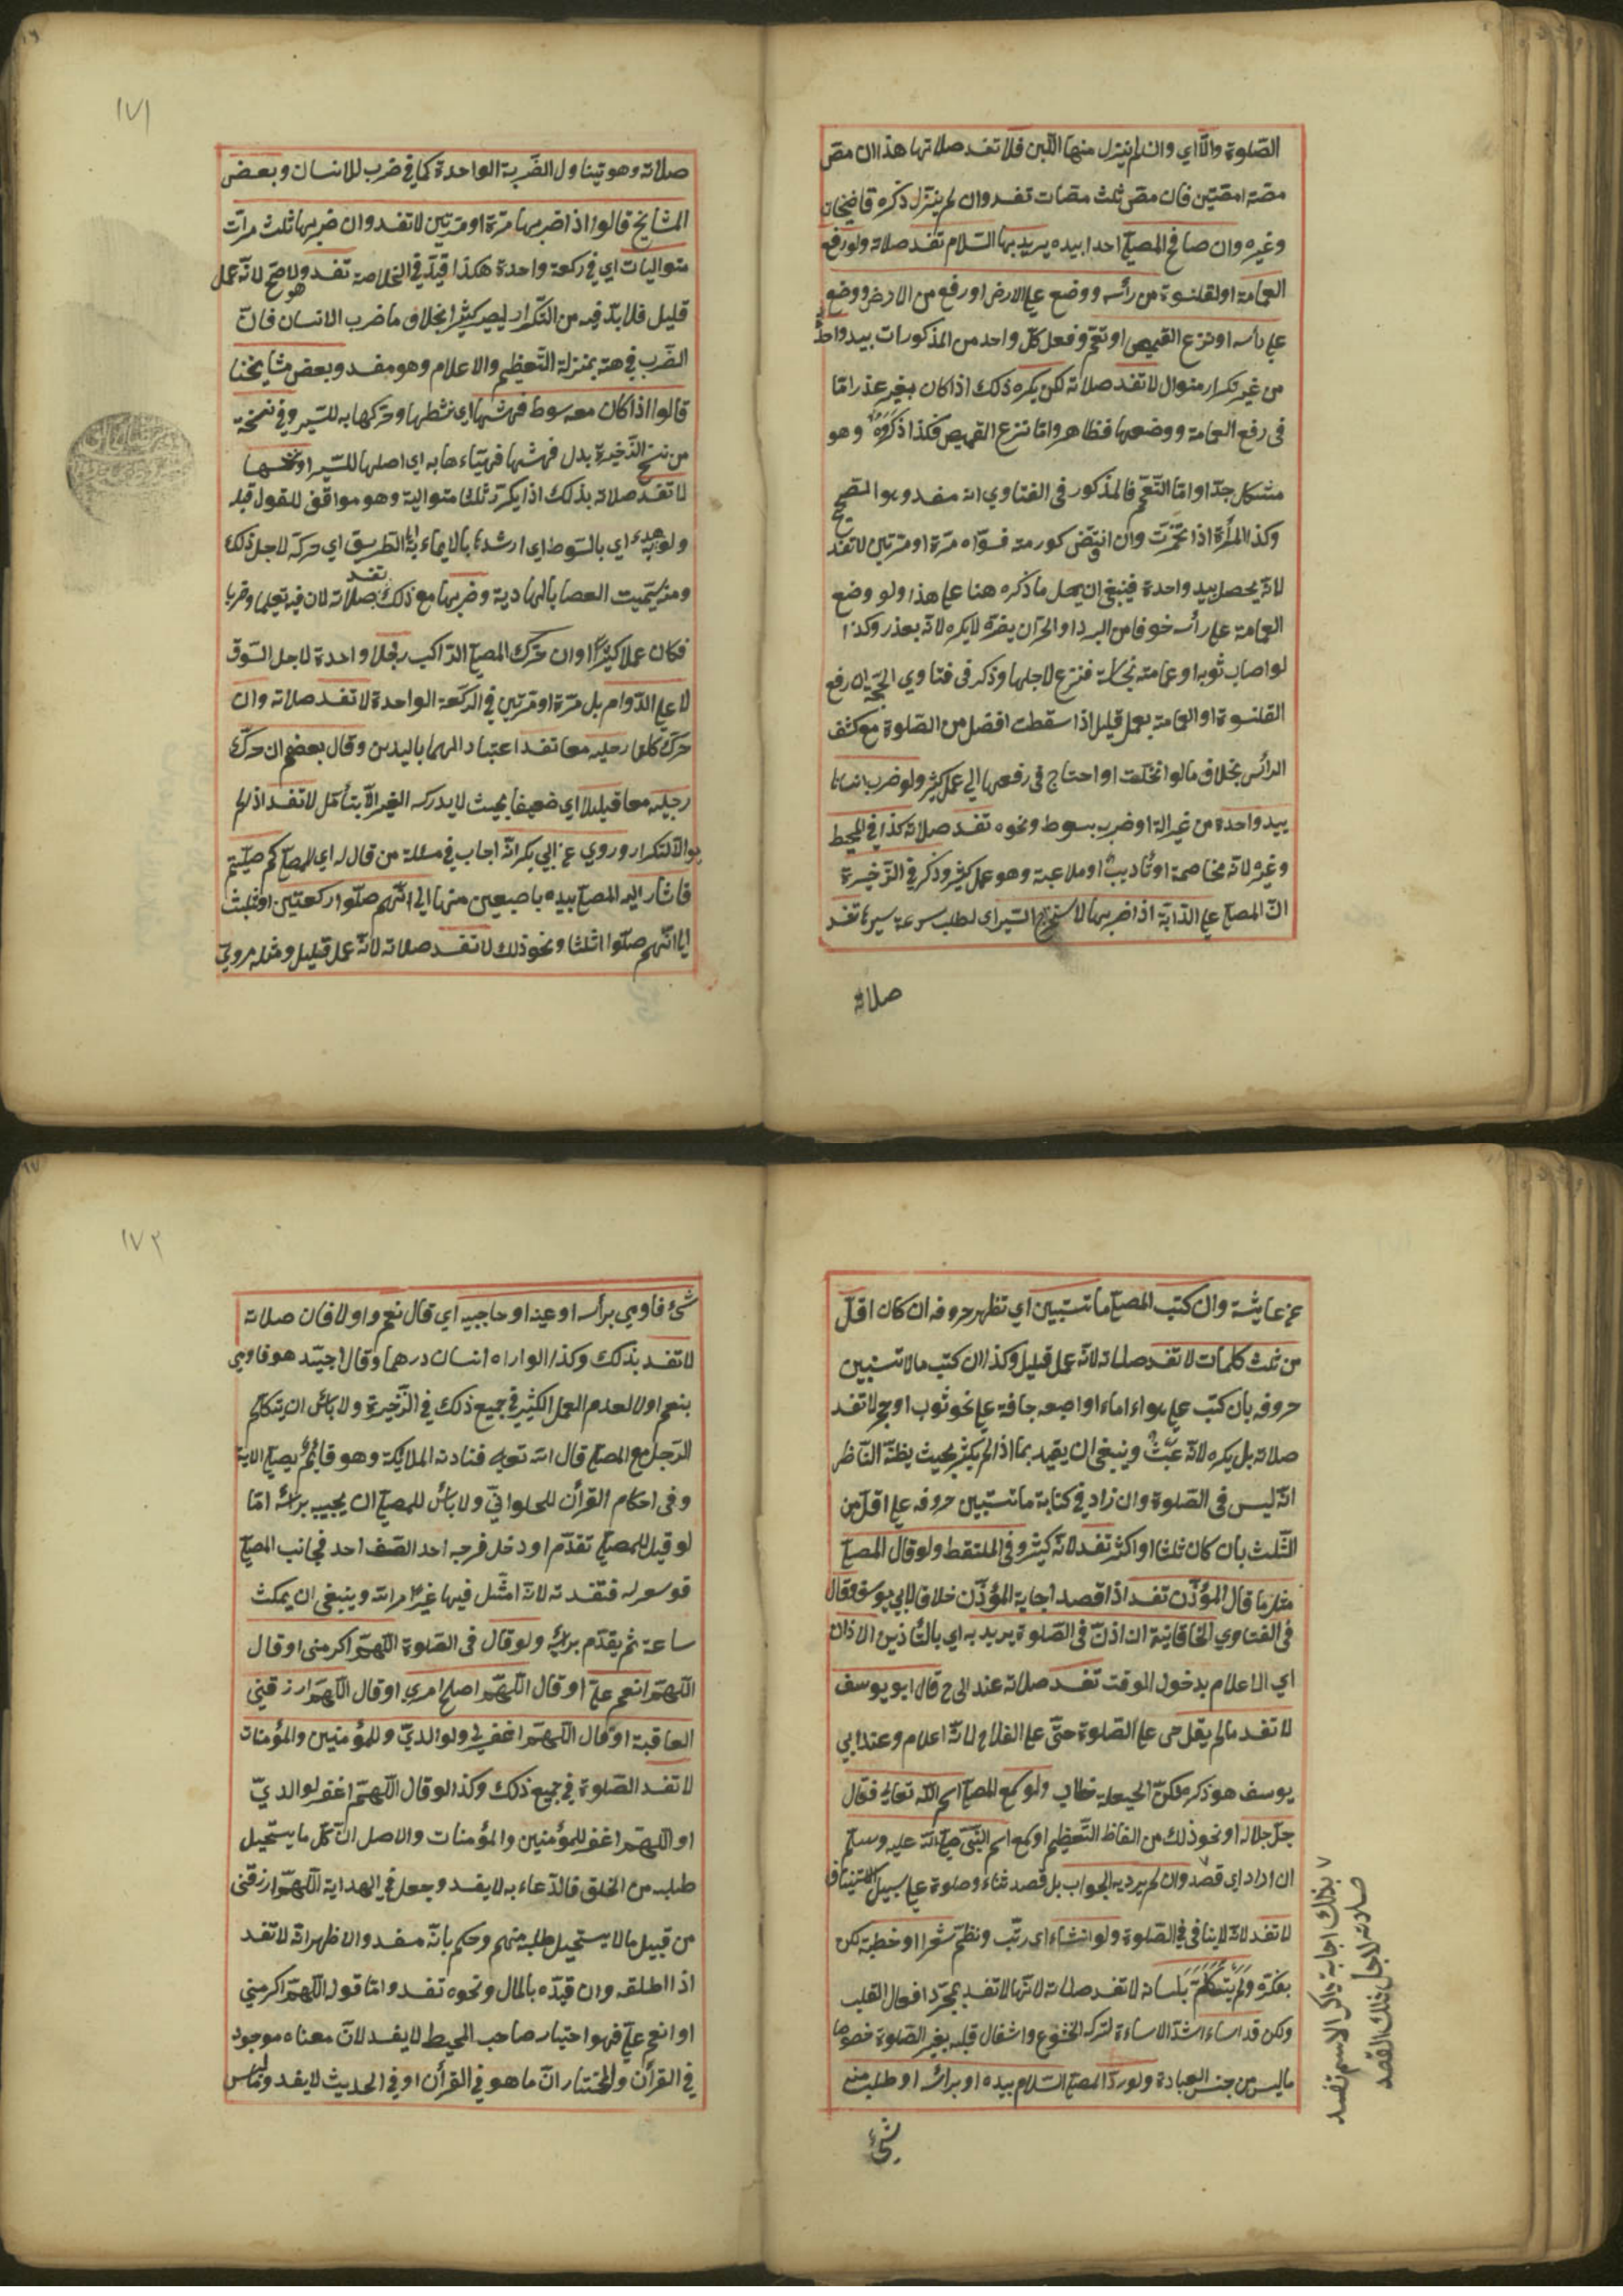 الصّلوة والّا اي وان لم ينزل منها اللّبن فلا تفسد صلاتها هذا ان مصّ
مصّة او مصّتين فان مصّ ثلث مصّات تفسد وان لم ينزل ذكره قاضيخان
وغيره وان صافح المصلّي احدا بيده يريد بها السّلام تفسد صلاته ولو رفع
العمامة او القلنسوة من رأسه ووضع علي الارض او رفع من الارض ووضع
علي رأسه او نزع القميص او تعمّم وفعل كلّ واحد من المذكورات بيد واحدة
من غير تكرار متوال لا تفسد صلاته لكن يكره ذلك اذا كان بغير عذر امّا
في رفع العمامة ووضعها فظاهر وامّا نزع القميص فكذا ذكروه وهو
مشكل جدّا وامّا التّعمّم فالمذكور في الفتاوي انه مفسد وهو الصّحيح
وكذا المرأة اذا تخمّرت وان انتقض كور منه فسوّاه مرّة او مرّتين لا تفسد
لانّه يحصل بيد واحدة فينبغي ان يحمل ما ذكره هنا علي هذا ولو وضع
العمامة علي رأسه خوفا من البرد او الحرّ ان يضرّه لا يكره لانّه بعذر وكذا
لو اصاب ثوبه او عمامته نجاسة فنزع لاجلها وذكر في فتاوي الحجّة ان رفع
القلنسوة او العمامة بعمل قليل اذا سقطت افضل من الصّلوة مع كشف
الرأس بخلاف ما لو انحلّت او احتاج في رفعها الي عمل كثير ولو ضرب انسانا
بيد واحدة من غير الة او ضرب بسوط ونحوه تفسد صلاته كذا في المحيط
وغيره لانه مخاصمة او تأديب او ملاعبة وهو عمل كثير وذكر في الذّخيرة
انّ المصلّي علي الدّابّة اذا ضربها لاستخراج السّير اي لطلب سرعة سيرها تفسد
صلاته
١٧١
صلاته وهو يتناول الضّربة الواحدة كما في ضرب الانسان وبعض
المشايخ قالوا اذا ضربها مرّة او مرّتين لا تفسد وان ضربها ثلث مرّات
متواليات اي في ركعة واحدة هكذا قيّد في الخلاصة تفسد وهو الاصحّ لانّه عمل
قليل فلا بدّ فيه من التّكرار ليصير كثيرا بخلاف ما ضرب الانسان فانّ
الضّرب في حقه بمنزلة التّعظيم والاعلام وهو مفسد وبعض مشايخنا
قالوا اذا كان معه سوط فهشّها اي نشطها وحرّكها به للسّير وفي نسخة
من نسخ الذّخيرة بدل فهشّها فهيّاءها به اي اصلها للسّير او نخسها
لا تفسد صلاته بذلك اذا لم يكرّر ثلثا متوالية وهو موافق للقول قبله
ولو هداه اي بالسّوط اي ارشده بالايماء به الي الطّريق اي حركه لاجل ذلك
ومنه سمّيت العصا بالهادية وضربها مع ذلك تفسد صلاته لان فيه تعليما وضربا
فكان عملا كثيرا وان حرّك المصلّي الرّاكب رجلا واحدة لاجل السّوق
لا علي الدّوام بل مرّة او مرّتين في الركعة الواحدة لا تفسد صلاته وان
حرّك كلتا رجليه معا تفسد اعتبارا لهما باليدين وقال بعضهم ان حرّك
رجليه معا قليلا اي ضعيفا بحيث لا يدركه الغير الّا بتأمّل لا تفسد اذا لم
يوال التكرار وروي عن ابي بكر انّه اجاب في مسئلة من قال له اي للمصلّي كم صلّيتم
فاشار اليه المصلّي بيده باصبعين منها الي انّهم صلّوا ركعتين او بثلث
الي انّهم صلّوا ثلثا ونحو ذلك لا تفسد صلاته لانّه عمل قليل ومثله مرويّ
عن عايشة وان كتب المصلّي ما تستبين اي تظهر حروفه ان كان اقلّ
من ثلث كلمات لا تفسد صلاته لانّه عمل قليل وكذا ان كتب ما لا تستبين
حروفه بان كتب علي هواء او ماء او اصبعه جافة علي نحو ثوب او حجر لا تفسد
صلاته بل يكره لانّه عبث وينبغي ان يقيد بما اذا لم يكثر بحيث يظنّه النّاظر
انّه ليس في الصّلوة وان زاد في كتابة ما تستبين حروفه علي اقلّ من
الثّلث بان كان ثلثا او اكثر تفسد لانّه كثير وفي الملتقط ولو قال المصلّي
مثل ما قال المؤذّن تفسد اذا قصد اجابة المؤذّن خلافا لابي يوسف وقال
في الفتاوي الخاقانيّة ان اذنّ في الصّلوة يريد به اي بالتّأذين الاذان
اي الاعلام بدخول الوقت تفسد صلاته عند ابي ح قال ابو يوسف
لا تفسد ما لم يقل حي علي الصّلوة حيّ علي الفلاح لانّه اعلام وعند ابي
يوسف هو ذكر ولكنّ الحيعلة خطاب ولو سمع المصلّي اسم اللّه تعالي فقال
جلّ جلاله او نحو ذلك من الفاظ التّعظيم او سمع اسم النّبيّ صلّي اللّه عليه وسلّم
ان اراد اي قصد وان لم يرد به الجواب بل قصد ثناء وصلوة علي سبيل الاستيناف
لا تفسد لانّه لا ينافي في الصّلوة ولو انشاء اي رتّب ونظم شعرا او خطبة لكن
بفكره ولم يتكلّم بلسانه لا تفسد صلاته لانّها لا تفسد بمجرّد افعال القلب
ولكن قد اساء اشدّ الاساءة لتركه الخشوع واشغال قلبه بغير الصّلوة خصوصا
ما ليس من جنس العبادة ولو ردّ المصلّي السّلام بيده او برأسه او طلب منه
بذلك اجابة ذاكر الاسم تفسد
صلاته لاجل ذلك القصد
شئ
١٧٢
شئ فاومي برأسه او عينه او حاجبيه اي قال نعم او لا فان صلاته
لا تفسد بذلك وكذا لو اراه انسان درهما وقال اجيّد هو فاومي
بنعم او لا لعدم العمل الكثير في جميع ذلك في الذّخيرة ولا بأس ان يتكلّم
الرّجل مع المصلّي قال اللّه تعالي فنادته الملائكة وهو قائم يصلّي الاية
وفي احكام القرأن للحلوانيّ ولا بأس للمصلّي ان يجيب برأسه امّا
لو قيل للمصلّي تقدّم او دخل فرجه احد الصّف احد فجانب المصلّي
فوسع له فتفسد لانّه امتثل فيها غير امر اللّه وينبغي ان يمكث
ساعة ثم يتقدّم برأيه ولو قال في الصّلوة اللّهمّ اكرمني او قال
اللّهمّ انعم عليّ او قال اللّهمّ اصلح امري او قال اللّهمّ ارزقني
العاقبة او قال اللّهمّ اغفر لي ولوالديّ وللمؤمنين والمؤمنات
لا تفسد الصّلوة في جميع ذلك وكذا لو قال اللّهمّ اغفر لوالديّ
او اللّهمّ اغفر للمؤمنين والمؤمنات والاصل انّ كلّ ما يستحيل
طلبه من الخلق فالدّعاء به لا يفسد وجعل في الهداية اللّهمّ ارزقني
من قبيل ما لا يستحيل طلبه منهم وحكم بانّه مفسد والاظهر انّه لا تفسد
اذا اطلقه وان قيّده بالمال ونحوه تفسد وامّا قوله اللّهمّ اكرمني
او انعم عليّ فهو اختيار صاحب المحيط لا يفسد لانّ معناه موجود
في القرأن والمختار انّ ما هو في القرأن او في الحديث لا يفسد وما ليس